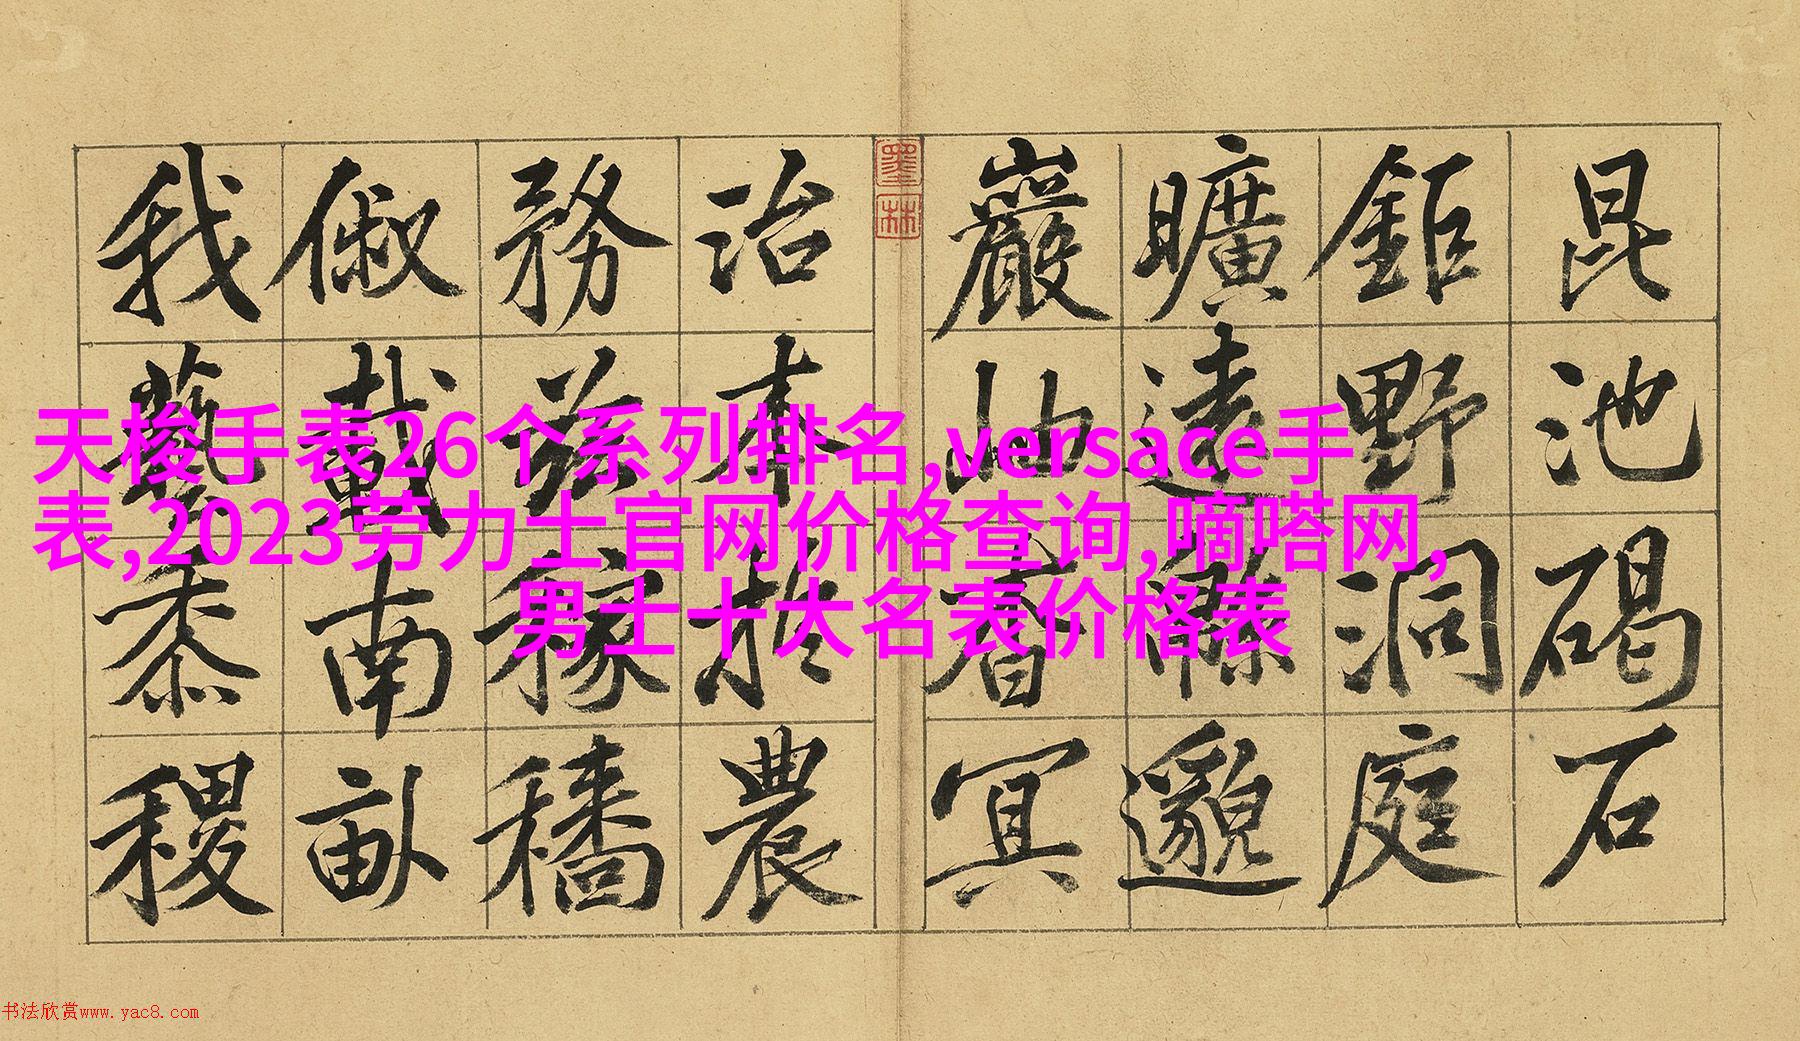 昆池碣石
鉅野洞庭
曠遠緜邈
巖岫杳冥
治本於農
務茲稼穡
俶載南畝
我藝黍稷
墨林
天梭手表26个系列排名,versace手
表,2023劳力士官网价格查询,嘀嗒网,
男士十大名表价格表
书法欣赏www.yac8.com